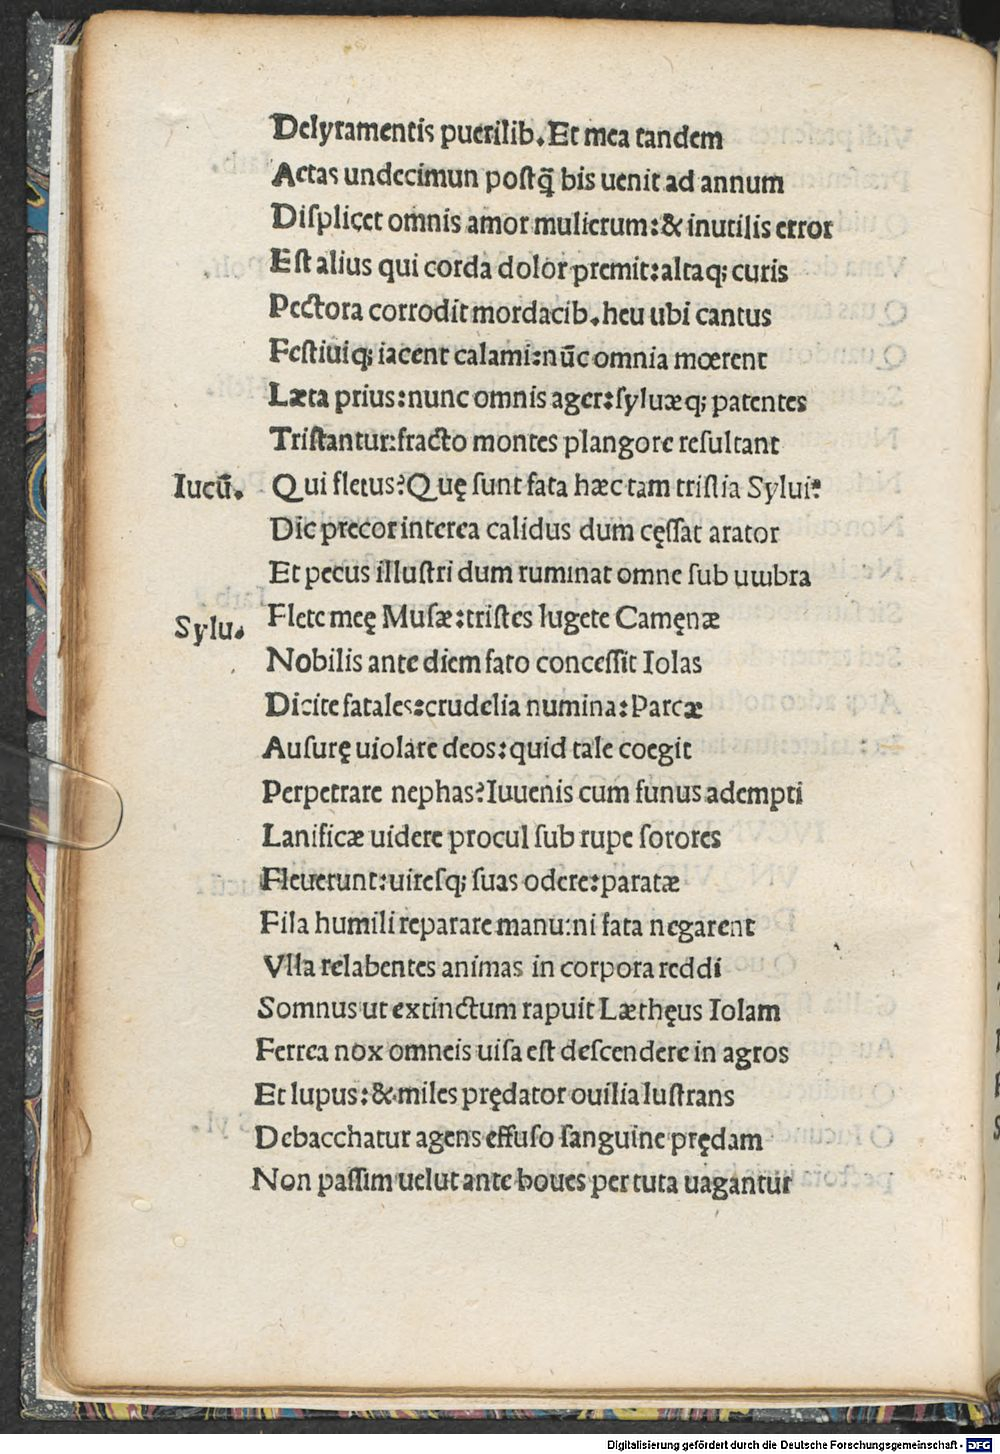 Delyramentis puerilib. Et mea tandem
Aetas undecimun postq̃ bis uenit ad annum
Displicet omnis amor mulierum: & inutilis error
Est alius qui corda dolor premit: altaq; curis
Pectora corrodit mordacib. heu ubi cantus
Festiuiq; iacent calami: nũc omnia mœrent
Læta prius: nunc omnis ager: syluæq; patentes
Tristantur: fracto montes plangore resultant
Iucũ. Qui fletus? Quę sunt fata hæc tam tristia Sylui?
Dic precor interea calidus dum cęssat arator
Et pecus illustri dum ruminat omne sub umbra
Sylu. Flete meę Musæ: tristes lugete Camęnæ
Nobilis ante diem fato concessit Iolas
Dicite fatales: crudelia numina: Parcæ
Ausurę uiolare deos: quid tale coegit
Perpetrare nephas? Iuuenis cum funus adempti
Lanificæ uidere procul sub rupe sorores
Fleuerunt: uiresq; suas odere: paratæ
Fila humili reparare manu: ni fata negarent
Vlla relabentes animas in corpora reddi
Somnus ut extinctum rapuit Læthęus Iolam
Ferrea nox omneis uisa est descendere in agros
Et lupus: & miles prędator ouilia lustrans
Debacchatur agens effuso sanguine prędam
Non passim uelut ante boues per tuta uagantur
Digitalisierung gefördert durch die Deutsche Forschungsgemeinschaft - DFG